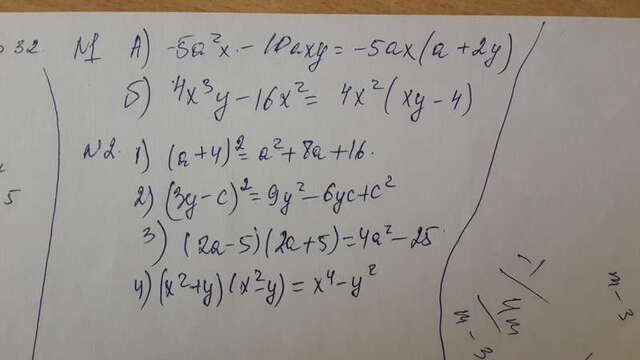 32.
N1 A) -5a²x - 10axy = -5ax(a+2y)
Б) 4x³y - 16x² = 4x²(xy-4)
N2. 1) (a+4)² = a² + 8a + 16.
2) (3y-c)² = 9y² - 6yc + c²
3) (2a-5)(2a+5) = 4a² - 25.
4) (x²+y)(x²-y) = x⁴ - y²